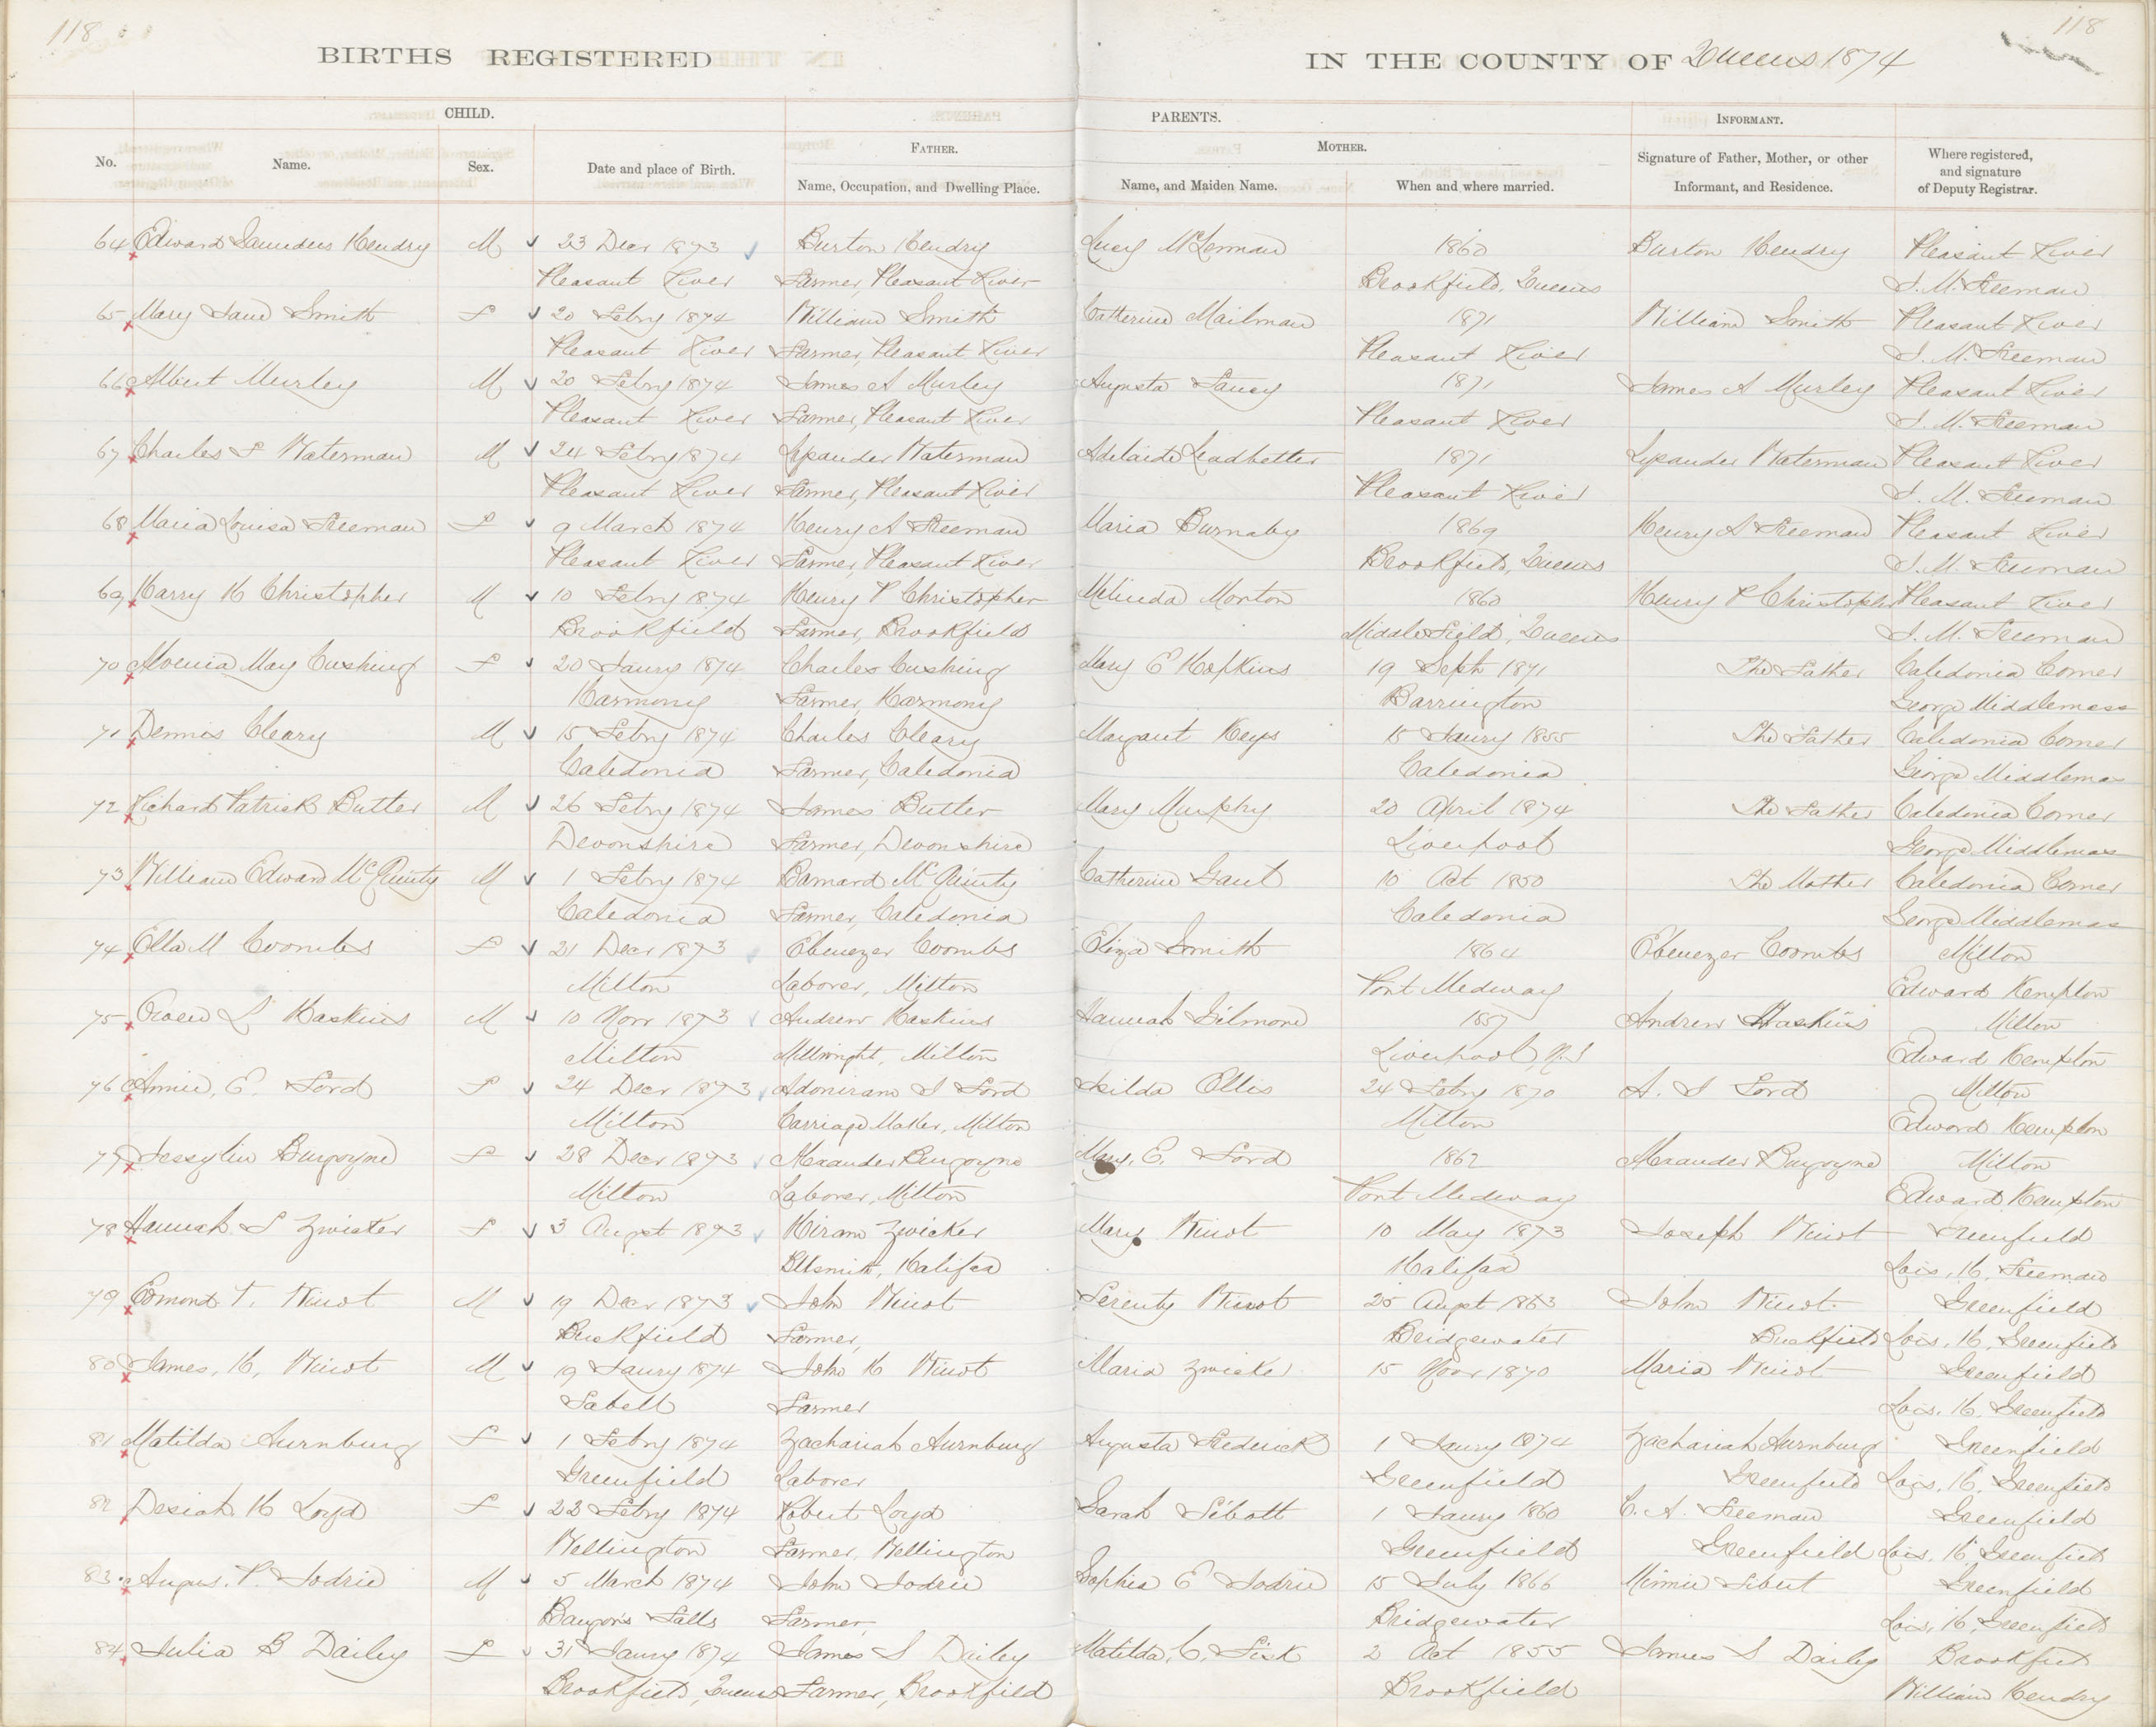 118
118
BIRTHS REGISTERED IN THE COUNTY OF Queens 1874
CHILD. PARENTS. INFORMANT.
FATHER. MOTHER.
No. Name. Sex. Date and place of Birth. Name, Occupation, and Dwelling Place. Name, and Maiden Name. When and where married. Signature of Father, Mother, or other Informant, and Residence. Where registered, and signature of Deputy Registrar.
64 Edward Saunders Hendry M 23 Decr 1873 Burton Hendry Lucy McLennan 1860 Burton Hendry Pleasant River
Pleasant River Farmer, Pleasant River Brookfield, Queens J. M. Freeman
65 Mary Jane Smith F 20 Febry 1874 William Smith Catherine Mailman 1871 William Smith Pleasant River
Pleasant River Farmer, Pleasant River Pleasant River J. M. Freeman
66 Albert Murley M 20 Febry 1874 James A Murley Augusta 1871 James A Murley Pleasant River
Pleasant River Farmer, Pleasant River Pleasant River J. M. Freeman
67 Charles F Waterman M 24 Febry 1874 Lysander Waterman Adelaide Leadbetter 1871 Lysander Waterman Pleasant River
Pleasant River Farmer, Pleasant River Pleasant River J. M. Freeman
68 Maria Louisa Freeman F 9 March 1874 Henry A Freeman Maria Burnaby 1869 Henry A Freeman Pleasant River
Pleasant River Farmer, Pleasant River Brookfield, Queens J. M. Freeman
69 Harry H Christopher M 10 Febry 1874 Henry P Christopher Melinda Morton 1860 Henry P Christopher Pleasant River
Brookfield Farmer, Brookfield Middlefield, Queens J. M. Freeman
70 May Cushing F 20 Jaury 1874 Charles Cushing Mary E Hopkins 19 Sept 1871 The Father Caledonia Corner
Harmony Farmer, Harmony Barrington George Middlemass
71 Dennis Cleary M 15 Febry 1874 Charles Cleary Margaret Keys 15 Jaury 1855 The Father Caledonia Corner
Caledonia Farmer, Caledonia Caledonia George Middlemas
72 Richard Patrick Butler M 26 Febry 1874 James Butler Mary Murphy 20 April 1874 The Father Caledonia Corner
Devonshire Farmer, Devonshire Liverpool George Middlemas
73 William Edward McGinty M 1 Febry 1874 Barnard McGinty Catherine Gaut 10 Oct 1850 The Mother Caledonia Corner
Caledonia Farmer, Caledonia Caledonia George Middlemas
74 Ella M Coombs F 21 Decr 1873 Ebenezer Coombs Eliza Smith 1864 Ebenezer Coombs Milton
Milton Laborer, Milton Port Medway Edward Kempton
75 L Haskins M 10 Novr 1873 Andrew Haskins Hannah Gilmore 1857 Andrew Haskins Milton
Milton Millwright, Milton Liverpool, N.S Edward Kempton
76 Annie, E. Ford F 24 Decr 1873 Adoniram J Ford Ellis 24 Febry 1870 A. J Ford Milton
Milton Carriage Maker, Milton Milton Edward Kempton
77 Burgoyne F 28 Decr 1873 Alexander Burgoyne Mary, E. Ford 1862 Alexander Burgoyne Milton
Milton Laborer, Milton Port Medway Edward Kempton
78 Hannah S Zwicker F 3 Augst 1873 Hiram Zwicker Mary Winot 10 May 1873 Joseph Winot Greenfield
Blksmith, Halifax Halifax Lois, H, Freeman
79 Edmond T. Winot M 19 Decr 1873 John Winot Serenty Winot 25 Augst 1863 John Winot Greenfield
Buckfield Farmer, Bridgewater Buckfield Lois, H, Greenfield
80 James, H, Winot M 19 Jaury 1874 John H Winot Maria Zwicker 15 Novr 1870 Maria Winot Greenfield
Farmer Lois, H, Greenfield
81 Matilda Aurnburg F 1 Febry 1874 Zachariah Aurnburg Augusta Frederick 1 Jaury 1874 Zachariah Aurnburg Greenfield
Greenfield Laborer Greenfield Greenfield Lois, H, Greenfield
82 Desiah H Loyd F 22 Febry 1874 Robert Loyd Sarah 1 Jaury 1860 C. A. Freeman Greenfield
Wellington Farmer, Wellington Greenfield Greenfield Lois, H, Greenfield
83 Angus. P. Jodrie M 5 March 1874 John Jodrie Sophia E Jodrie 15 July 1866 Minnie Sibert Greenfield
Falls Farmer, Bridgewater Lois, H, Greenfield
84 Julia B Dailey F 31 Jaury 1874 James S Dailey Matilda, C, Fisk 2 Oct 1855 James S Dailey Brookfield
Brookfield, Queens Farmer, Brookfield Brookfield William Hendry